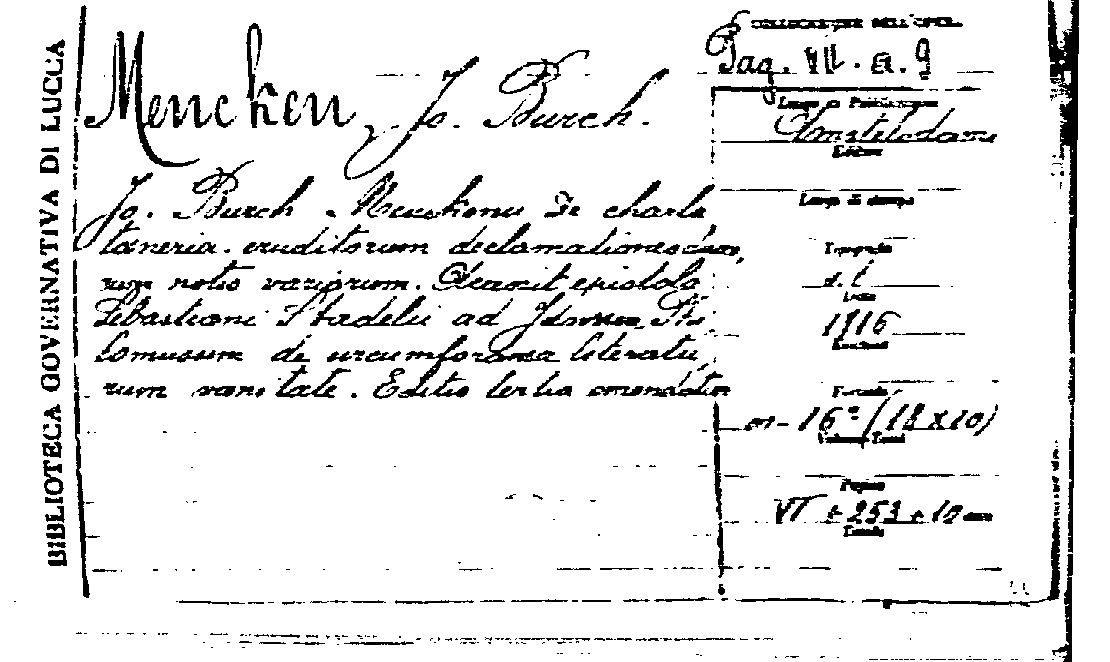 BIBLIOTECA GOVERNATIVA DI LUCCA
Mencken, Jo. Burch.
Jo. Burch Menckenii De charla
taneria eruditorum declamationes cum
rum notis variorum. Accessit epistola
Sebastiani Stadelii ad Janum Phi
lomusum de circumforanea literato
rum vanitate. Editio tertia emendatior
COLLOCAZIONE DELL'OPERA
Pag. VII. a. 9
Luogo di Pubblicazione
Amstelodami
Editore
Luogo di stampa
Tipografia
s. t.
Data
1716
Formato
in-16° (18 x 10)
Pagine
VI + 253 + 10